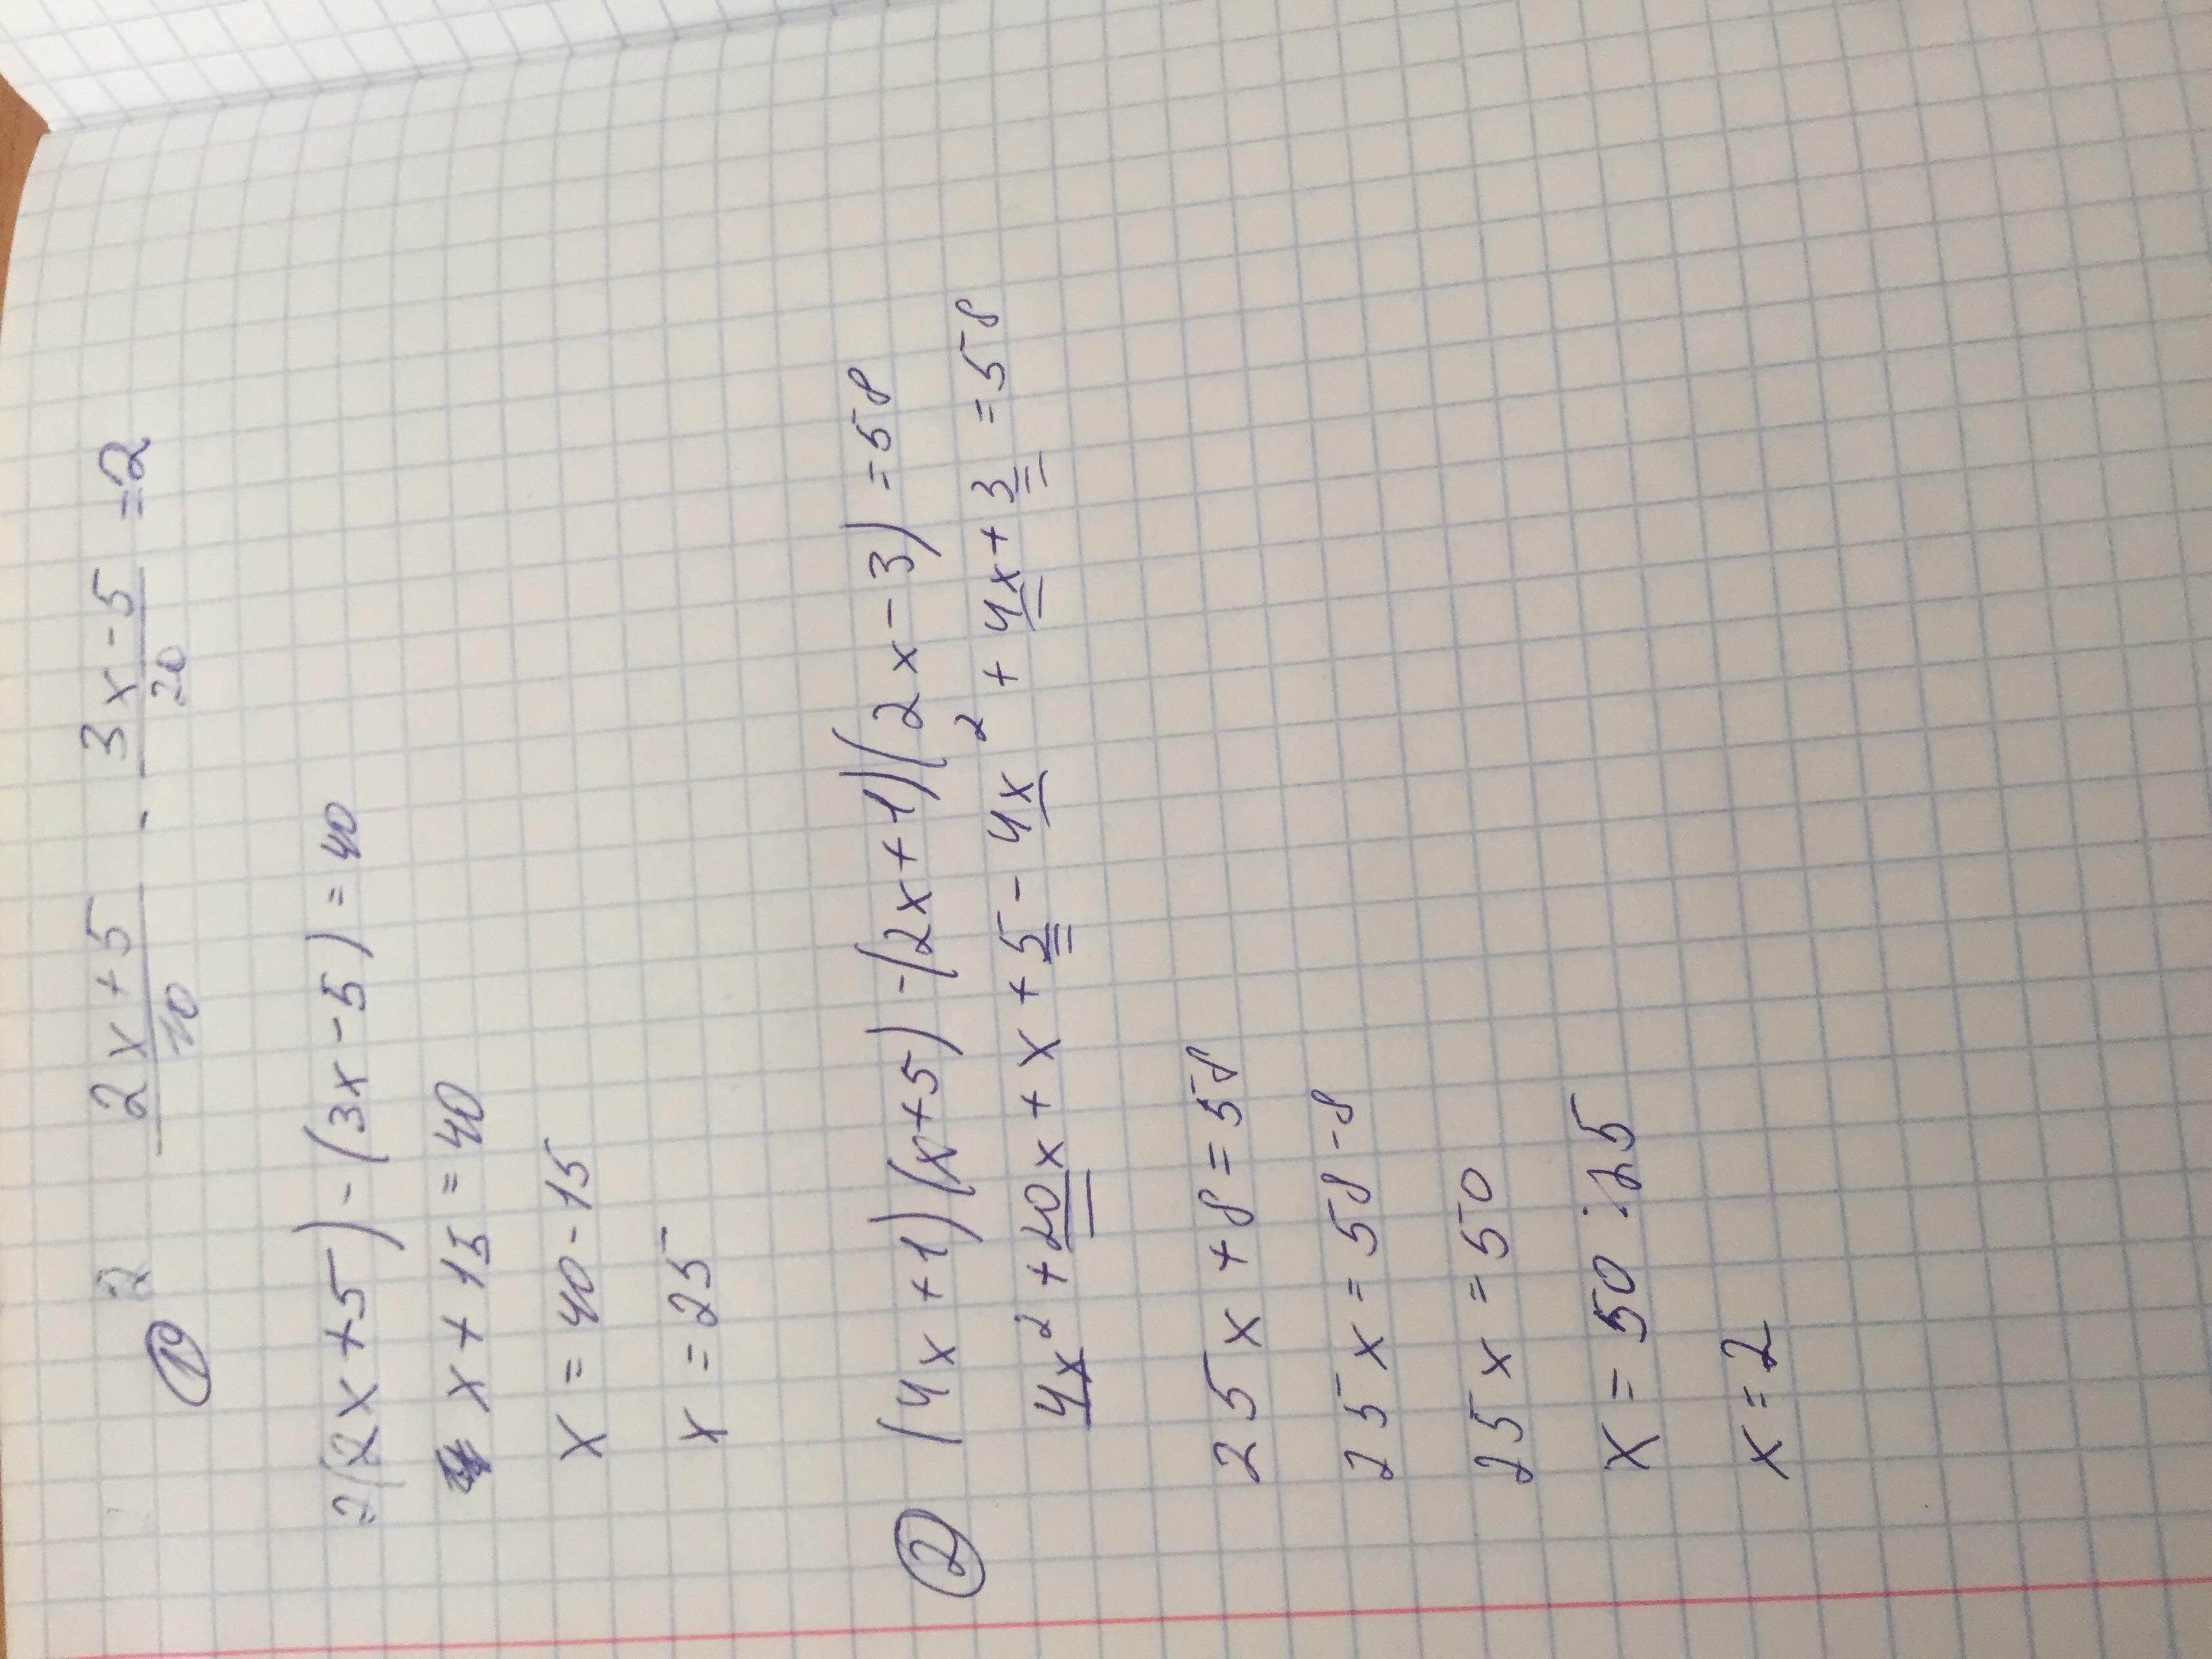 ① 2 (2x+5)/10 - (3x-5)/20 = 2
=2(2x+5)-(3x-5)=40
x+15=40
x=40-15
x=25
② (4x+1)(x+5)-(2x+1)(2x-3)=58
4x²+20x+x+5-4x²+4x+3=58
25x+8=58
25x=58-8
25x=50
x=50:25
x=2